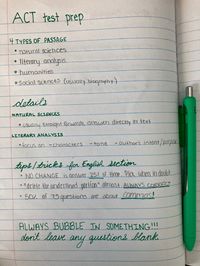 ACT test prep
4 TYPES OF PASSAGE
• natural sciences
• literary analysis
• humanities
• social sciences (usually biography)
details
NATURAL SCIENCES
• usually straight forward, answers directly in text
LITERARY ANALYSIS
• focus on • characters • tone • author's intent/purpose
tips/tricks for English section
• NO CHANGE is answer 25% of time. Pick when in doubt
• "delete the underlined portion" almost ALWAYS CORRECT
• of 75 questions are about commas!
ALWAYS BUBBLE IN SOMETHING!!!
don't leave any questions blank